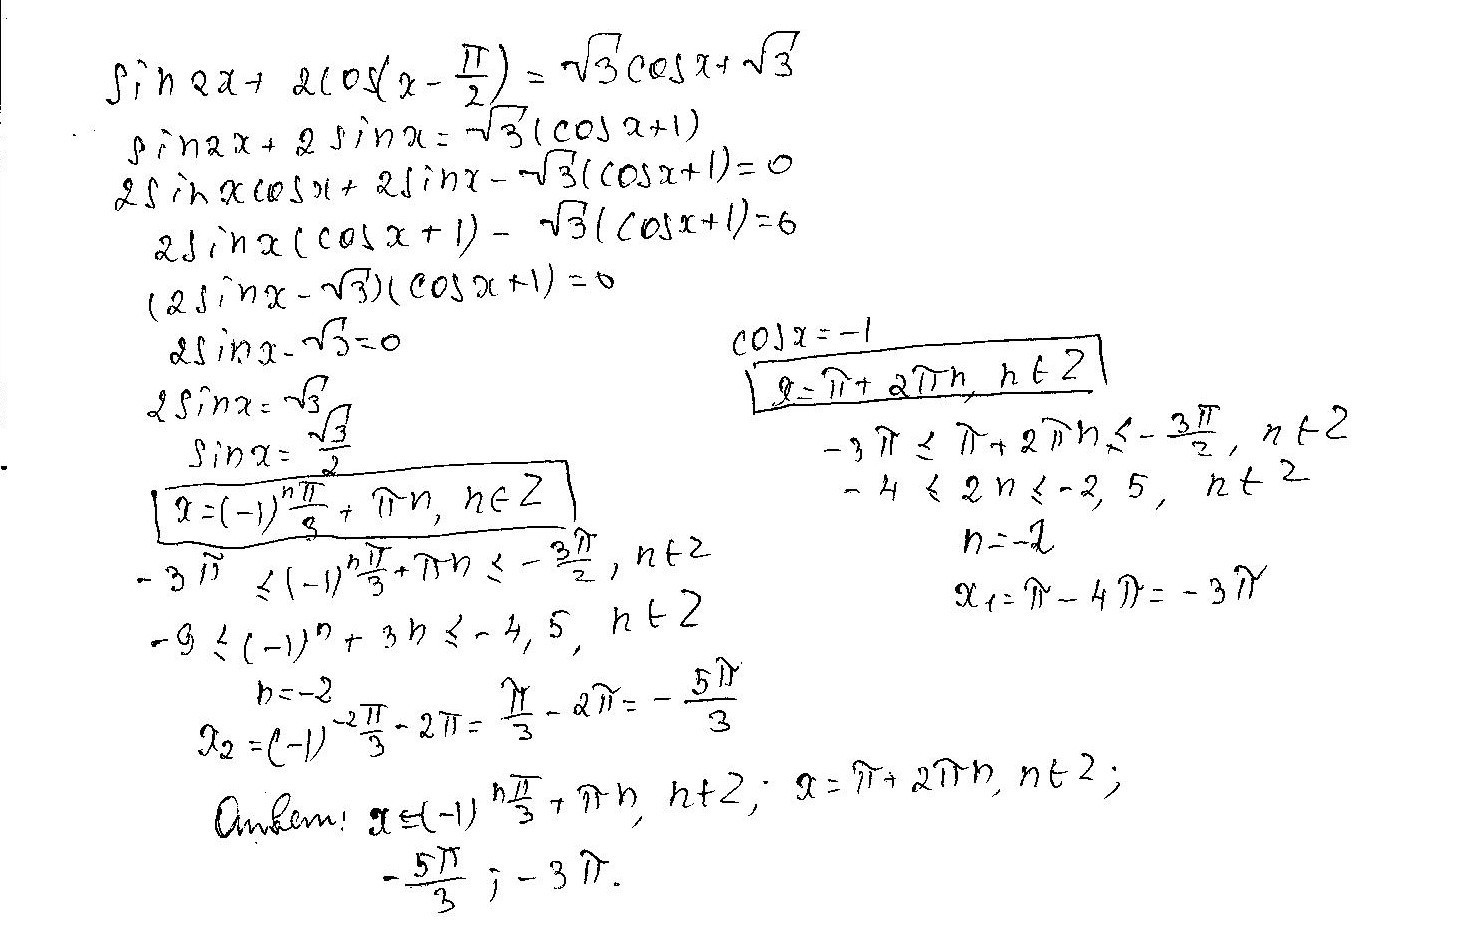 sin2x + 2cos(x - π/2) = √3 cosx + √3
sin2x + 2sinx = √3(cosx+1)
2sinxcosx + 2sinx - √3(cosx+1) = 0
2sinx(cosx+1) - √3(cosx+1) = 0
(2sinx - √3)(cosx+1) = 0
2sinx - √3 = 0
2sinx = √3
sinx = √3/2
x = (-1)ⁿ π/3 + πn, n∈Z
-3π ≤ (-1)ⁿ π/3 + πn ≤ -3π/2, n∈Z
-9 ≤ (-1)ⁿ + 3n ≤ -4,5, n∈Z
n = -2
x₂ = (-1)⁻² π/3 - 2π = π/3 - 2π = -5π/3
cosx = -1
x = π + 2πn, n∈Z
-3π ≤ π + 2πn ≤ -3π/2, n∈Z
-4 ≤ 2n ≤ -2,5, n∈Z
n = -2
x₁ = π - 4π = -3π
Ответ: x = (-1)ⁿ π/3 + πn, n∈Z; x = π + 2πn, n∈Z;
-5π/3; -3π.